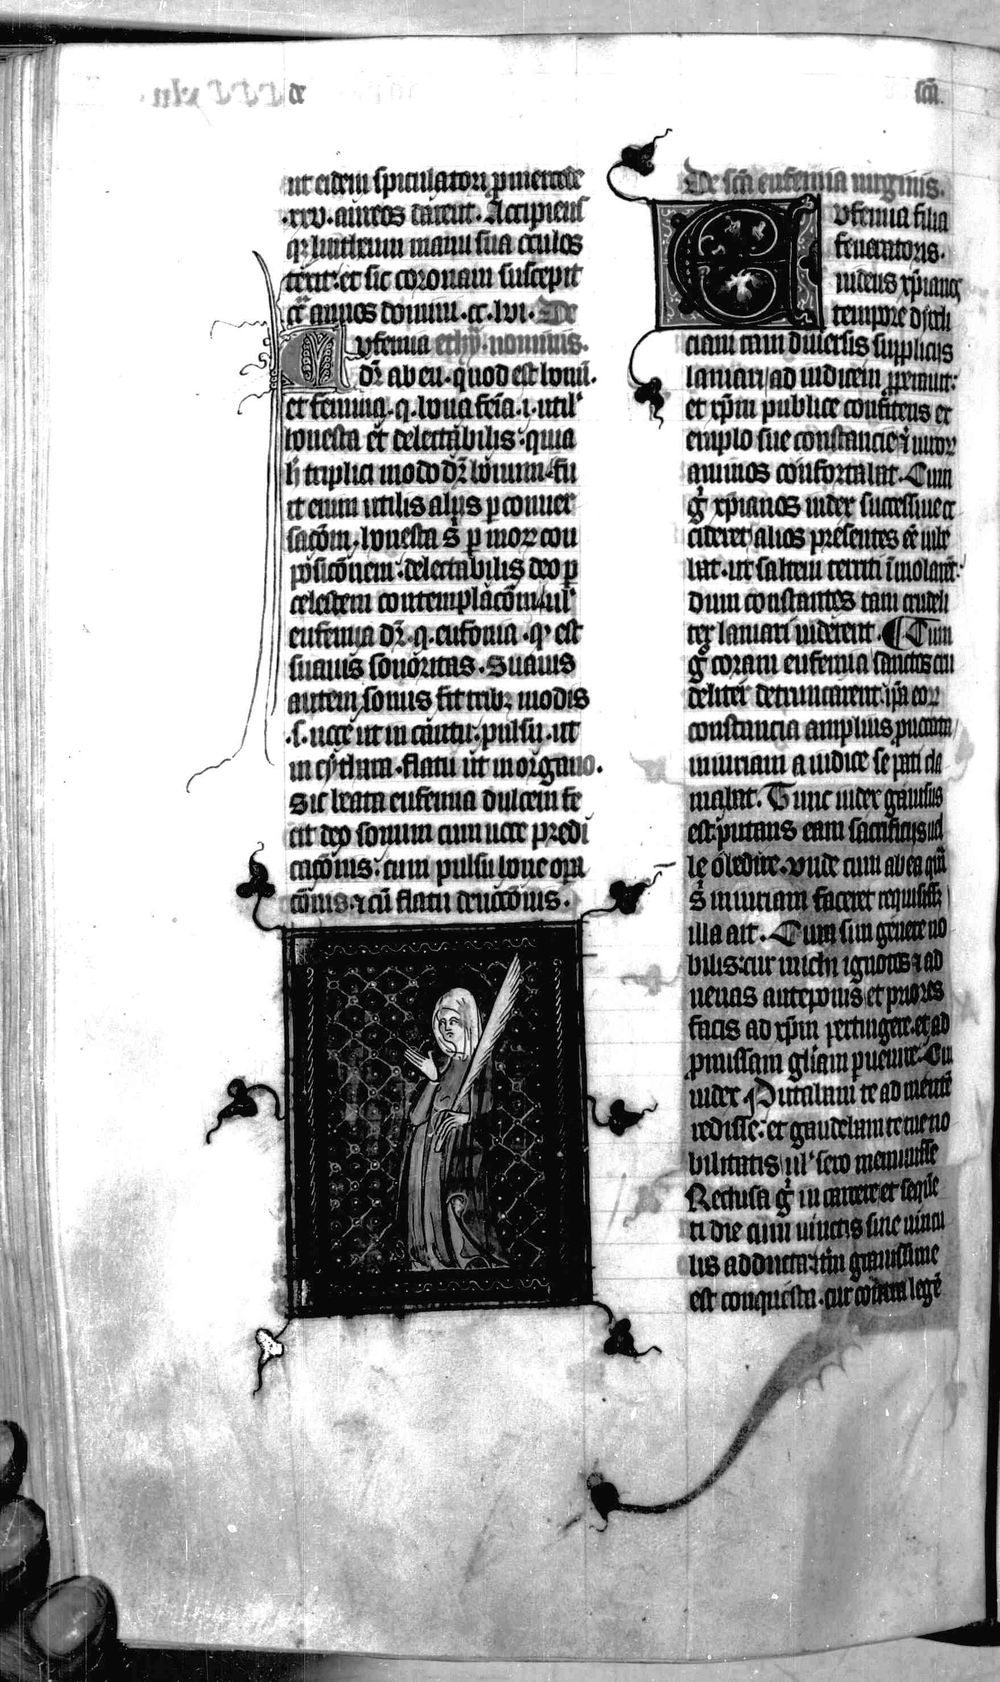 de
scā.
ut eidem spiculatori p̱ mercede
.xxv. aureos darent. Accipiens
q̱ȝ lintheum manu sua oculos
texit. et sic coronam suscepit
cͣ annos domini. cc. lvi. De
Eufemia ethẏ. nominis.
dr̄ ab eu. quod est bonū.
et femina. q. bona feīa. i. utił
honesta et delectabilis. quia
h̄ triplici modo dr̄ bonum. fu
it enim utilis alijs p̱ conuer
sacōm. honesta s̄ p̱ mor̄ con
posicōnem. delectabilis deo p̱
celestem contemplacōm. ul'
eufemia dr̄. q. eufonia. qͥ est
suauis sonoritas. Suauis
autem sonus fit tribȝ modis
.s. uoce ut in cantu. pulsu. ut
in cythara. flatu ut in organo.
Sic beata eufemia dulcem fe
cit deo sonum cum uoce predi
cacōnis. cum pulsu bone opa
cōnis. ⁊ cū flatu deuocōnis.
De scā eufemia uirginis.
Eufemia filia
senatoris.
uidens xp̄ianos
tempore dyocli
ciani tam diuersis supplicijs
laniari ad iudicem p̱perauit.
et xp̄m publice confitens et
emplo sue constancie ⁊ uiror̄
animos confortabat. Cum
gͦ xp̄ianos iudex successiue oc
cideret alios presentes eē iube
bat. ut saltem territi īmolarēt.
dum constantes tam crudeli
ter laniari uiderent. ¶ Cum
gͦ coram eufemia sanctos cru
deliter detruncarent. ip̄a eor̄
constancia amplius p̱uocata
iniuriam a iudice se pati cla
mabat. Tunc iudex gauisus
est. putans eam sacrificijs uel
le obedire. vnde cum ab ea quā
s̄ iniuriam faceret requisisset
illa ait. Cum sim genere no
bilis. cur michi ignotos ⁊ ad
uenas anteponis et priores
facis ad xp̄m pertingere. et ad
p̱missam gl̄iam p̱uenire. Cui
iudex Putabam te ad mentē
redisse. et gaudebam te tue no
bilitatis ul' sero meminisse
Reclusa gͦ in carcere et sequē
ti die cum uinctis sine uincu
lis adducta iterum grauissime
est conquesta. cur contra legē